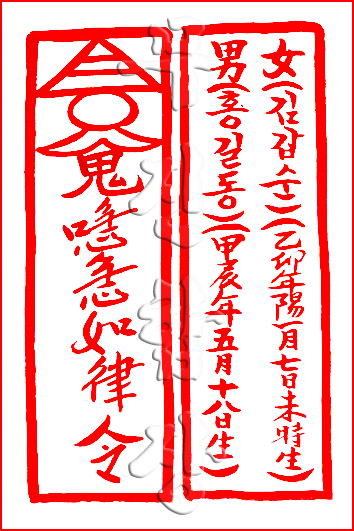 女(김갑순)(乙卯年陽一月七日未時生)
男(홍길동)(甲辰年五月十八日生)
鬼
喼急如律令